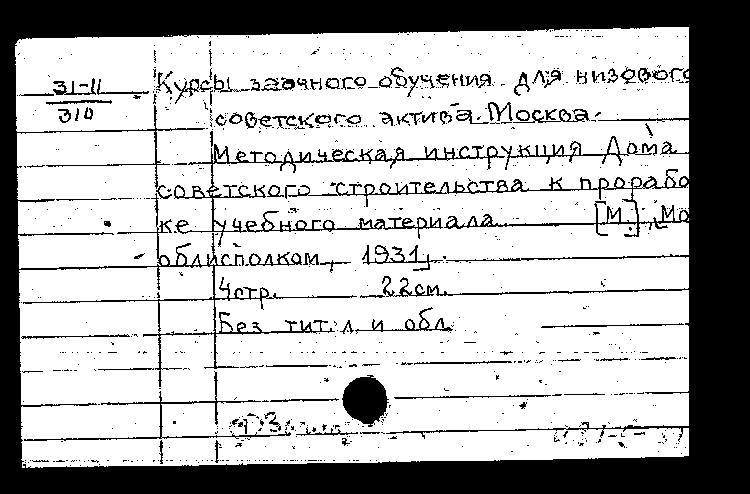 31-11
310
Курсы заочного обучения для низового
советского актива. Москва.
Методическая инструкция Дома
советского строительства к прорабо
ке учебного материала. [М.], Мо
облисполком, 1931.
4стр. 22см.
Без тит. л. и обл.